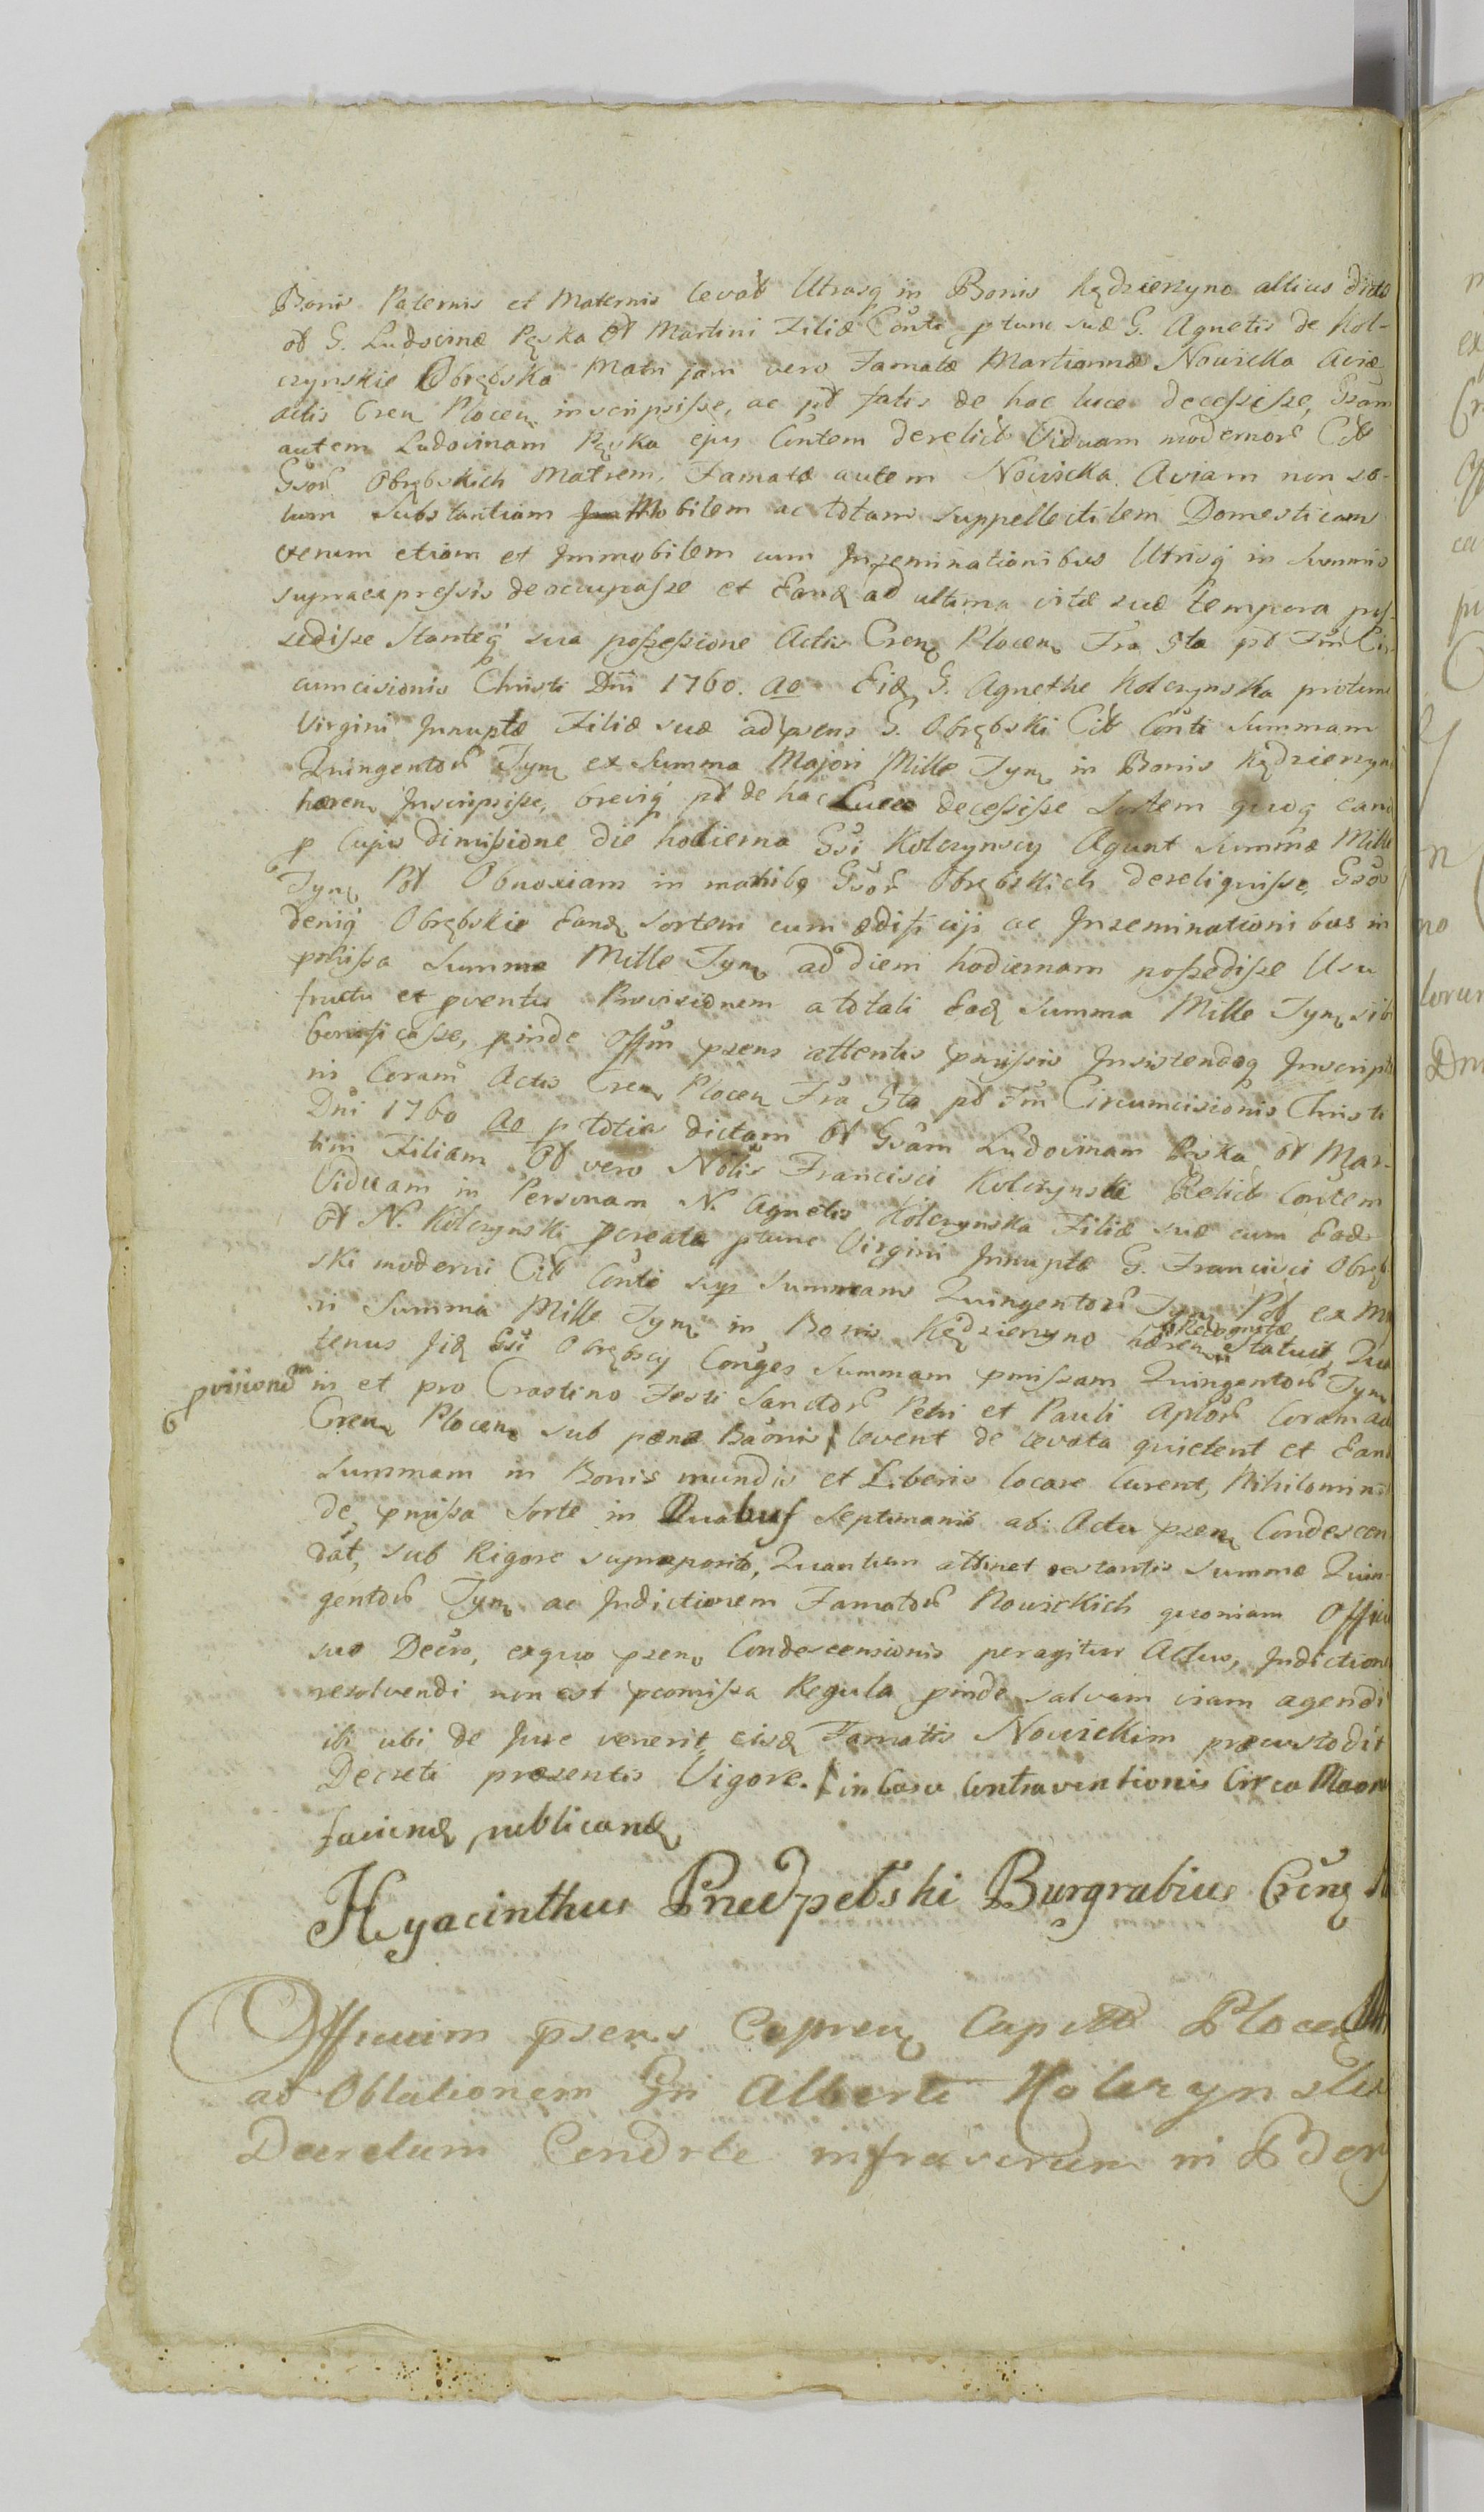 Bonis Paternis et Maternis levat Utrasq in Bonis Kędzierzyno altius dicto
olt G. Ludovinæ Pęska olt Martini Filiæ Conti ptunc suæ G. Agnetis de Kol-
czynskie Obrębska Matri jam vero Famatæ Martiannæ Nowicka Aviæ
actis Cren Plocen inscripsisse, ac pt fatis de hac luce decessisse, Gsam
autem Ludovinam Pęska ejus Contem derelict Viduam modernor Citt
Gsor Obrębskich Matrem, Famatæ autem Nowicka Aviam non so-
lum Substantiam Mobilem ac totam suppellectilem Domesticam
verum etiam et Immobilem cum Inseminationibus Utrisq in Summis
supraexpressis deoccupasse et Eand ad ultima vitæ suæ tempora pos-
sedisse Stanteq sua possessione Actis Cren Plocen Fra 5ta pt Fm Cir
cumcisionis Christi Dni 1760. Ao Eid G. Agnethe Kolczynska protunc
Virgini Innuptæ Filiæ suæ ad psens G. Obrębski Cit Conti Summam
Quingentor Tyn ex Summa Majori Mille Tyn in Bonis Kędzierzyn
hæren Inscripsisse, breviq pt de hac Luce decessisse Sortem quoq eand
p cujus dimissione die hodierna Gsi Kolczynscy Agunt Summæ Mille
Tyn Plt Obnoxiam in manib Gsor Obrębskich dereliquisse, Gsos
deniq Obrębskie Eand Sortem cum ædificijs ac Inseminationibus in
pmissa Summa Mille Tyn ad diem hodiernam possedisse Usu
fructu et pventus Provisionem a totali Ead Summa Mille Tyn sib
bonificasse, pinde Offm psens attentis pmissis Insistendoq Inscript
ni Coram Actis Cren Plocen Fra 5ta pt Fm Circumcisionis Christi
Dni 1760 Ao p toties dictam olt Gsam Ludovinam Pęska olt Mar-
tini Filiam olt vero Nolis Francisci Kolczynski Relict Contem
Viduam in Personam N. Agnetis Kolczynska Filiæ suæ cum Eod
olt N. Kolczynski pcreata ptunc Virgini Innuptæ G. Francisci Obręb
ski moderni Cit Conti sup Summam Quingentor Tyn Plt ex M
ri Summa Mille Tyn in Bonis Kędzierzyno hæren Recognitæ statuit, Qua
tenus Jid Gsi Obrębscy Conges Summam pmissam Quingentor Tyn
pvisionem in et pro Crastino Festi Sanctor Petri et Pauli Aplor Coram ac
Cren Plocen sub pæna Baonis levent de levata quietent et Eand
Summam in Bonis mundis et Liberis locare curent, Nihilomin
de pmissa Sorte in Duabus Septimanis ab Actu psen Condescen
dat, sub Rigore supraposito, Quantum attinet restantis Summæ Quin
gentor Tyn ac Indictionem Famator Nowickich quoniam Offic
suo Decro, exquo psens Condescensionis peragitur Actus, Indiction
resolvendi non est pcomissa Regula pinde salvam viam agendi
ibi ubi de Jure venerit eisd Famatis Nowickim præcustodit
Decreti præsentis Vigore. in Casu Contraventionis Circa
faciend publicand
Hyacinthus Przedpełski Burgrabius Cren
Officium psens Capneu Capitt Plocen
ad Oblationem Gn Alberti Kolczynski
Decretum infrascrum in